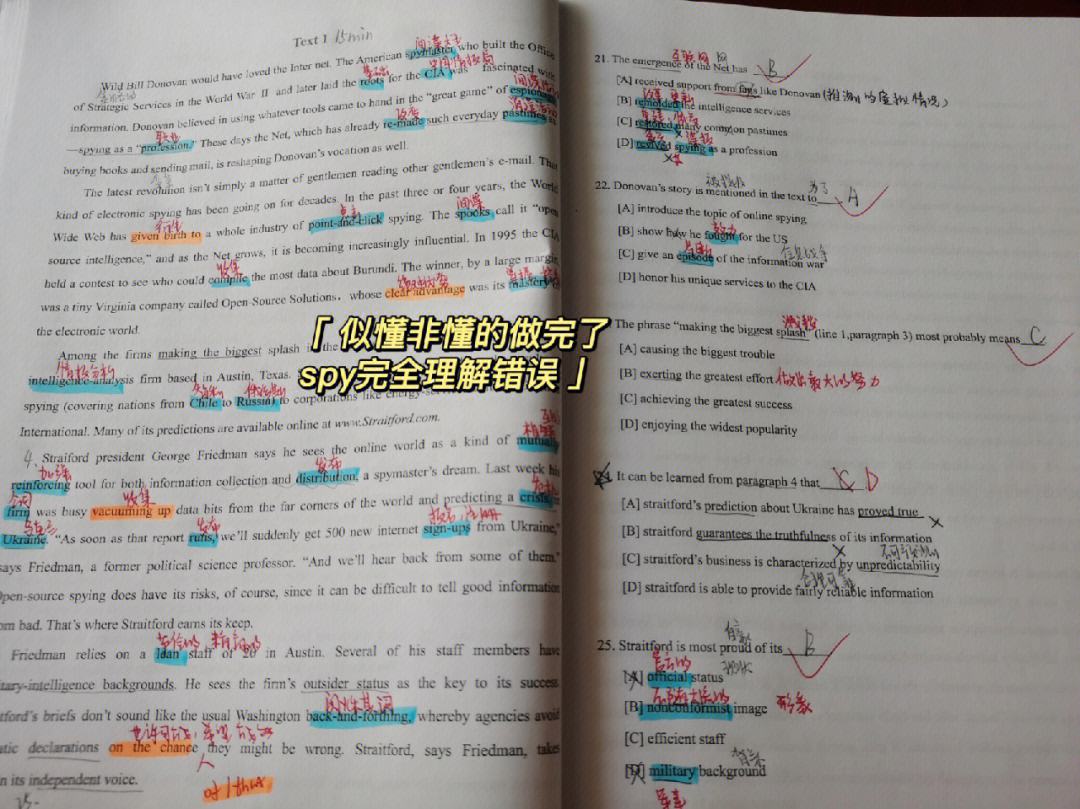 Text 1 15min
间谍大王
Wild Bill Donovan would have loved the Inter net. The American spymaster who built the Office
基础 中央情报局
of Strategic Services in the World War II and later laid the roots for the CIA was fascinated with
information. Donovan believed in using whatever tools came to hand in the "great game" of espionage
职业 改变 消遣活动
—spying as a "profession." These days the Net, which has already re-made such everyday pastimes as
buying books and sending mail, is reshaping Donovan's vocation as well.
The latest revolution isn't simply a matter of gentlemen reading other gentlemen's e-mail. That
kind of electronic spying has been going on for decades. In the past three or four years, the World
点击 间谍
Wide Web has given birth to a whole industry of point-and-click spying. The spooks call it "open
source intelligence," and as the Net grows, it is becoming increasingly influential. In 1995 the CIA
收集
held a contest to see who could compile the most data about Burundi. The winner, by a large margin,
was a tiny Virginia company called Open-Source Solutions, whose clear advantage was its mastery of
the electronic world.
Among the firms making the biggest splash in the
情报分析
intelligence-analysis firm based in Austin, Texas.
spying (covering nations from Chile to Russia) to corporations like energy-ser
International. Many of its predictions are available online at www.Straitford.com.
相互
4. Straiford president George Friedman says he sees the online world as a kind of mutually
加强 发布
reinforcing tool for both information collection and distribution, a spymaster's dream. Last week his
公司 收集 危机
firm was busy vacuuming up data bits from the far corners of the world and predicting a crisis in
乌克兰 发布 报名,注册
Ukraine. "As soon as that report runs, we'll suddenly get 500 new internet sign-ups from Ukraine,"
says Friedman, a former political science professor. "And we'll hear back from some of them."
Open-source spying does have its risks, of course, since it can be difficult to tell good information
from bad. That's where Straitford earns its keep.
Friedman relies on a lean staff of 20 in Austin. Several of his staff members have
military-intelligence backgrounds. He sees the firm's outsider status as the key to its success
tford's briefs don't sound like the usual Washington back-and-forthing, whereby agencies avoid
atic declarations on the chance they might be wrong. Straitford, says Friedman, takes
n its independent voice.
「 似懂非懂的做完了
spy完全理解错误 」
互联网
21. The emergence of the Net has B
[A] received support from fans like Donovan (推测的虚拟情况)
[B] remolded the intelligence services
[C] restored many common pastimes
[D] revived spying as a profession
被提及 为了
22. Donovan's story is mentioned in the text to A
[A] introduce the topic of online spying
努力
[B] show how he fought for the US
信息战争
[C] give an episode of the information war
[D] honor his unique services to the CIA
The phrase "making the biggest splash" (line 1,paragraph 3) most probably means C
[A] causing the biggest trouble
[B] exerting the greatest effort 做出最大的努力
[C] achieving the greatest success
[D] enjoying the widest popularity
It can be learned from paragraph 4 that C D
[A] straitford's prediction about Ukraine has proved true
[B] straitford guarantees the truthfulness of its information
不可预测的
[C] straitford's business is characterized by unpredictability
[D] straitford is able to provide fairly reliable information
自豪
25. Straitford is most proud of its B
[A] official status
[B] nonconformist image 形象
[C] efficient staff
背景
[D] military background
军事